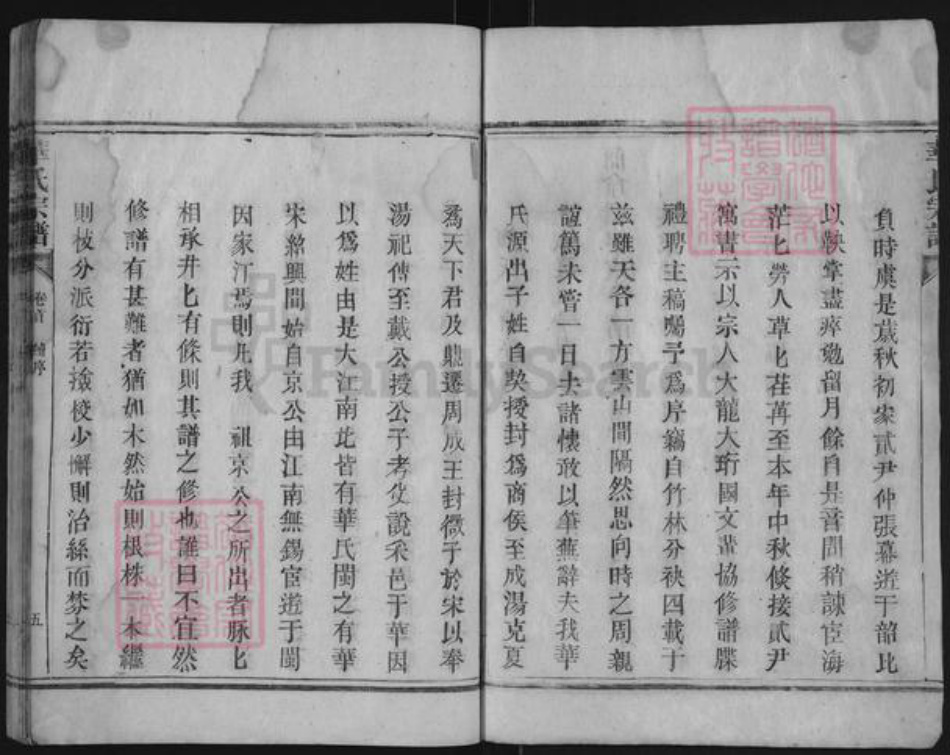 負時虞是歲秋初家貳尹仲張幕遊于韶比
以鞅掌盡瘁勉留月餘自是音問稍諫宦海
茫匕勞人草匕荏苒至本年中秋倐接貳尹
寓書示以宗人大龍大珩國文輩協修譜牒
禮聘主稿囑予爲序竊自竹林分袂四載于
兹雖天各一方雲山間隔然思向時之周親
誼篤未嘗一日去諸懷敢以筆蕪辭夫我華
氏源出子姓自契授封爲商侯至成湯克夏
爲天下君及鼎遷周成王封微子於宋以奉
湯祀傳至戴公授公子考父說采邑于華因
以爲姓由是大江南北皆有華氏閩之有華
宋紹興間始自京公由江南無錫宦遊于閩
因家汀焉則凡我 祖京公之所出者脉匕
相承井匕有條則其譜之修也誰曰不宜然
修譜有甚難者猶如木然始則根株一本繼
則枝分派衍若撿校少懈則治絲而棼之矣
華氏宗譜 卷首 五
華氏宗譜
FamilySearch